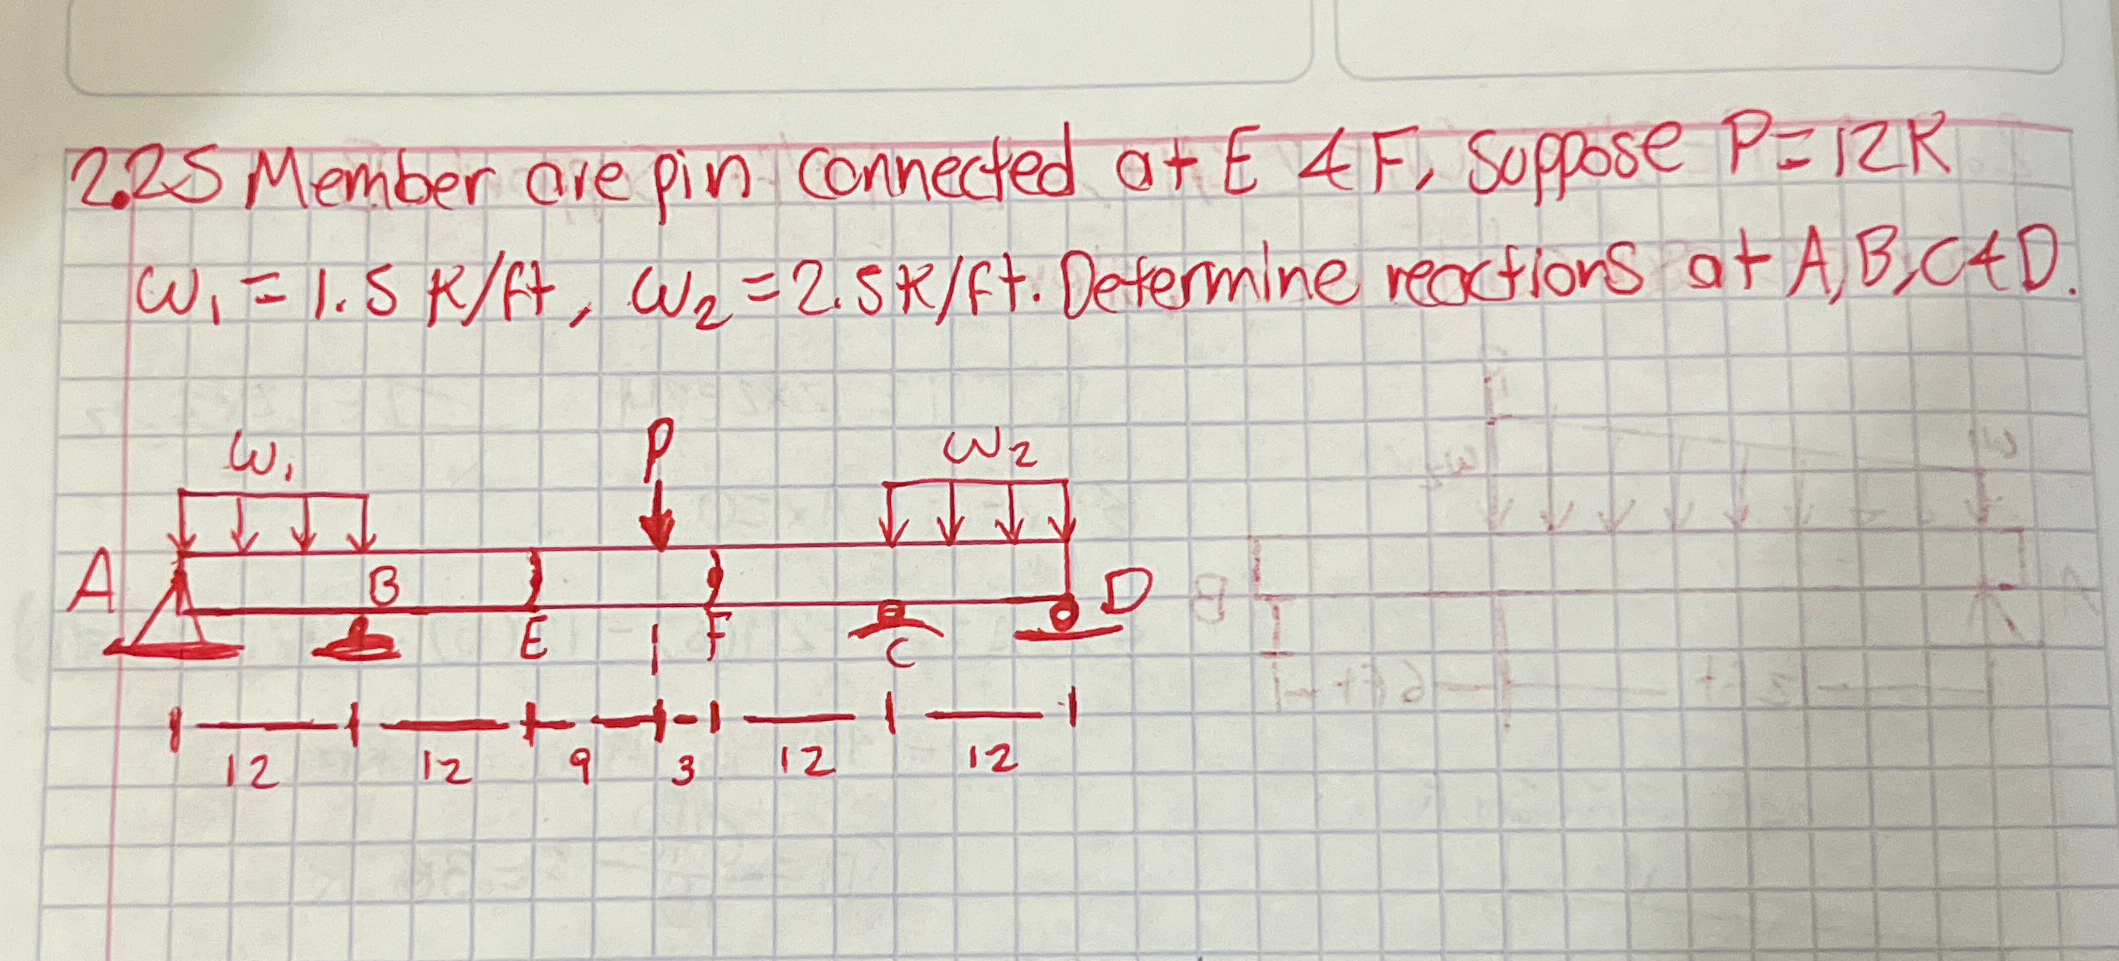 2.25 Member are pin connected at E & F, suppose P=12K
ω₁ = 1.5 K/ft, ω₂ = 2.5K/ft. Determine reactions at A, B, C & D.
ω₁ P ω₂
A B D
E F C
12 12 9 3 12 12